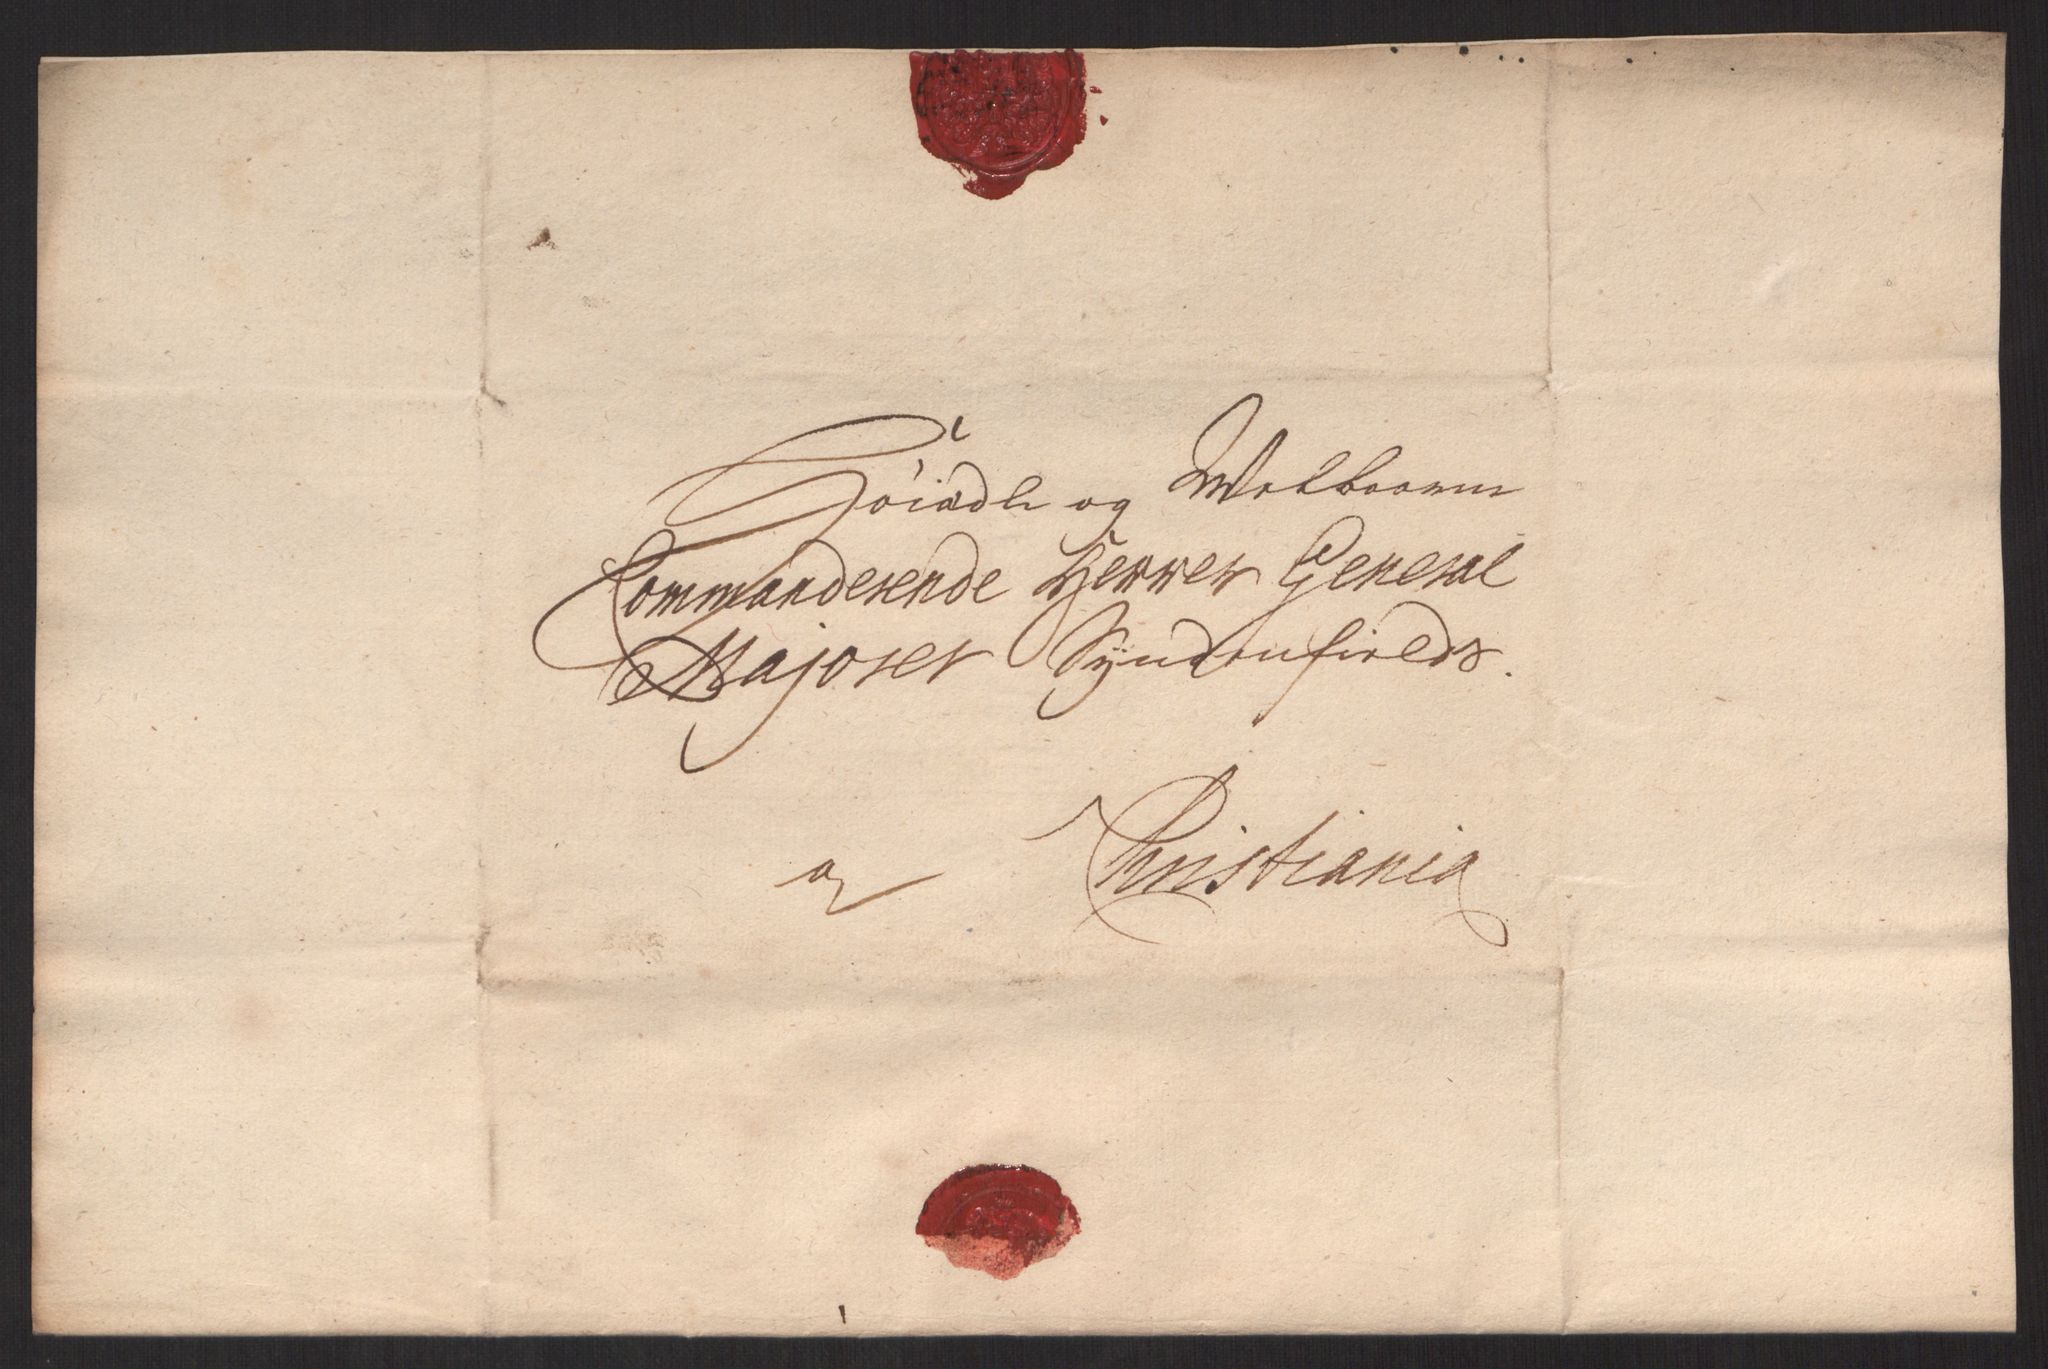 Höiædle og Welbaarne
Commanderende Herrer General
Majorer Syndenfields.
Christiania